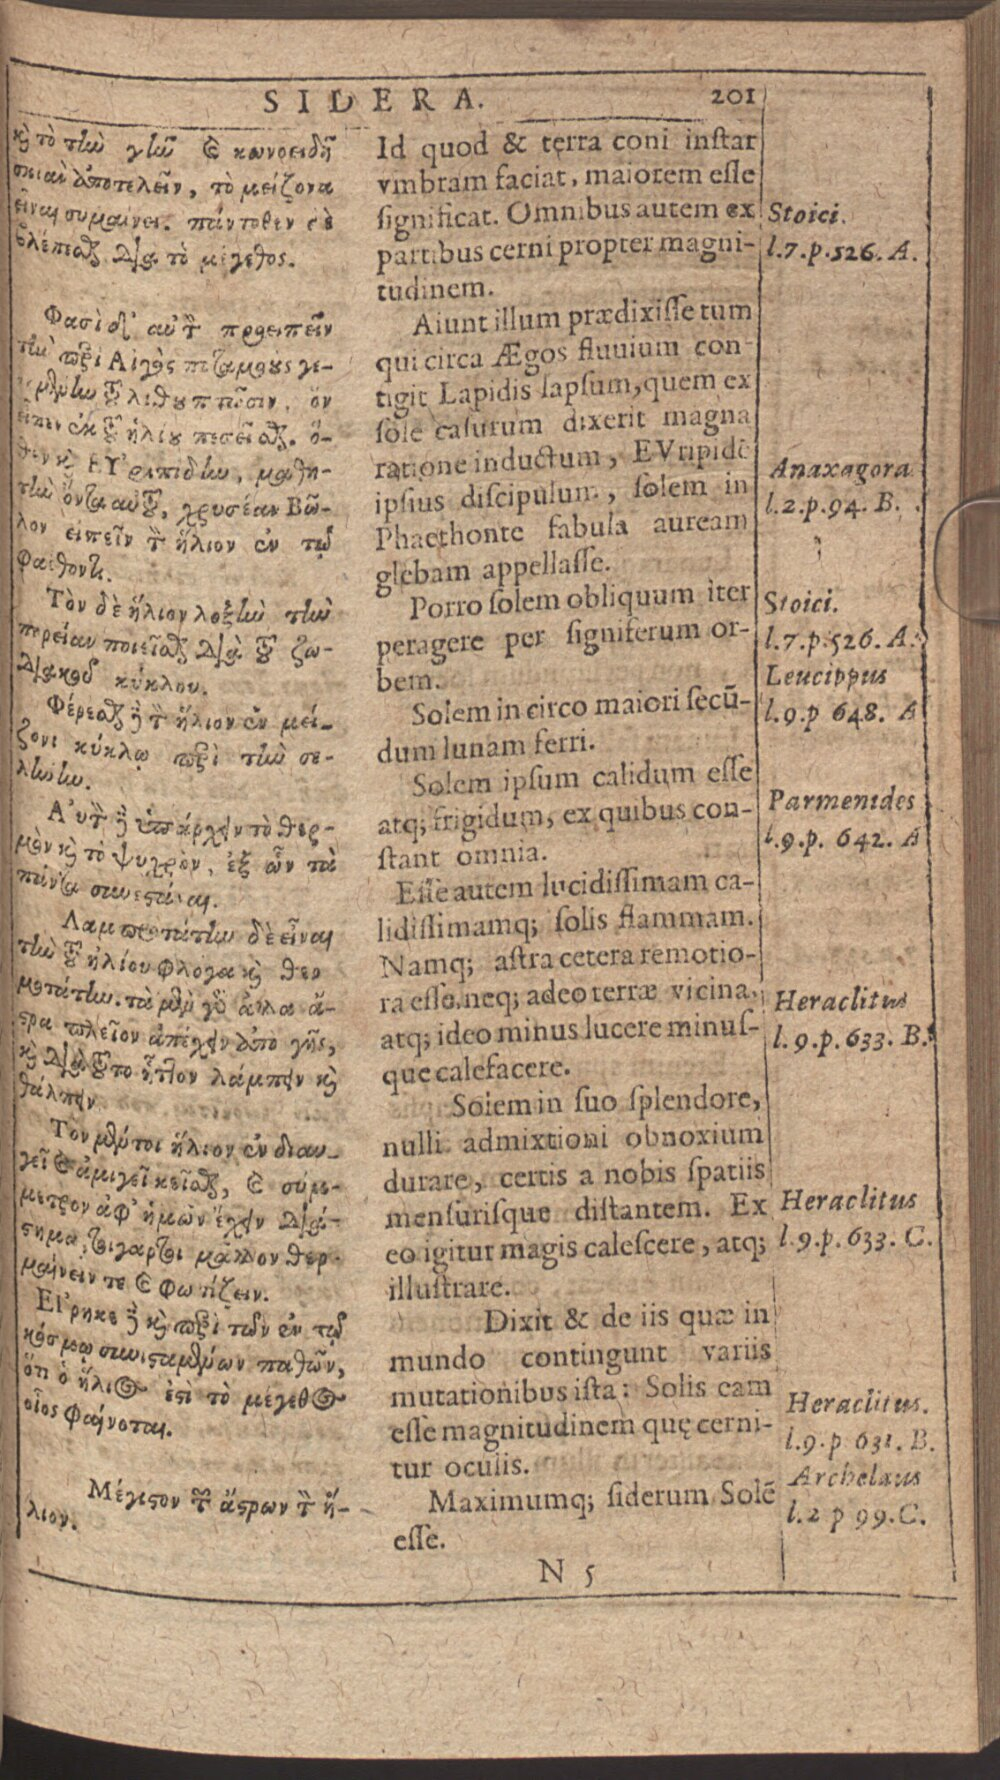 SIDERA. 201
καὶ τὸ τὴν γῆν καὶ κωνοειδῆ
σκιὰν ἀποτελεῖν, τὸ μείζονα
εἶναι σημαίνει. πάντοθεν δὲ
βλέπεσθαι διὰ τὸ μέγεθος.
Φασὶ δ' αὐτὸν προειπεῖν
τὴν περὶ Αἰγὸς ποταμοὺς γε-
νομένην τοῦ λίθου πτῶσιν, ὃν
εἶπεν ἐκ τοῦ ἡλίου πεσεῖσθαι. ὅ-
θεν καὶ ΕΥ'ριπίδην, μαθη-
τὴν ὄντα αὐτοῦ, χρυσέαν Βῶ-
λον εἰπεῖν τὸν ἥλιον ἐν τῷ
Φαέθοντι.
Τὸν δὲ ἥλιον λοξὴν τὴν
πορείαν ποιεῖσθαι διὰ τοῦ ζω-
διακοῦ κύκλου.
Φέρεσθαι δὲ τὸν ἥλιον ἐν μεί-
ζονι κύκλῳ περὶ τὴν σε-
λήνην.
Α'υτὸν δὲ ὑπάρχειν τὸ θερ-
μὸν καὶ τὸ ψυχρὸν, ἐξ ὧν τὰ
πάντα συνεστάναι.
Λαμπροτάτην δὲ εἶναι
τὴν τοῦ ἡλίου φλόγα καὶ θερ
μοτάτην. τὰ μὲν γὰρ ἄλλα ἄ-
στρα πλεῖον ἀπέχειν ἀπὸ γῆς,
καὶ διὰ τοῦτο ἧττον λάμπειν καὶ
θάλπειν
Τον μέντοι ἥλιον ἐν διαυ-
γεῖ καὶ ἀμιγεῖ κεῖσθαι, καὶ σύμ-
μετρον ἀφ' ἡμῶν ἔχειν διά-
στημα, τοιγαρτοι μᾶλλον θερ-
μαίνειν τε καὶ φωτίζειν.
ΕΙ'ρηκε δὲ καὶ περὶ τῶν ἐν τῷ
κόσμῳ συνισταμένων παθῶν,
ὅτι ὁ ἥλιος ἐστὶ τὸ μέγεθος
οἷος φαίνεται.
Μέγιστον τῶν ἄστρων τὸν ἥ-
λιον.
Id quod & terra coni instar
vmbram faciat, maiorem esse
significat. Omnibus autem ex
partibus cerni propter magni-
tudinem.
Aiunt illum prædixisse tum
qui circa Ægos fluuium con-
tigit Lapidis lapsum, quem ex
sole casurum dixerit magna
ratione inductum, EVripidē
ipsius discipulum, solem in
Phaethonte fabula auream
glebam appellasse.
Porro solem obliquum iter
peragere per signiferum or-
bem.
Solem in circo maiori secū-
dum lunam ferri.
Solem ipsum calidum esse
atq; frigidum, ex quibus con-
stant omnia.
Esse autem lucidissimam ca-
lidissimamq; solis flammam.
Namq; astra cetera remotio-
ra esse, neq; adeo terræ vicina,
atq; ideo minus lucere minus-
que calefacere.
Solem in suo splendore,
nulli admixtioni obnoxium
durare, certis a nobis spatiis
mensurisque distantem. Ex
eo igitur magis calescere, atq;
illustrare.
Dixit & de iis quæ in
mundo contingunt variis
mutationibus ista: Solis eam
esse magnitudinem quę cerni-
tur oculis.
Maximumq; siderum Solē
esse.
Stoici.
l.7.p.526.A.
Anaxagora
l.2.p.94.B.
Stoici.
l.7.p.526.A.
Leucippus
l.9.p 648. A
Parmenides
l.9.p. 642. A
Heraclitus
l.9.p.633. B.
Heraclitus
l.9.p.633. C.
Heraclitus.
l.9.p 631. B.
Archelaus
l.2 p 99.C.
N 5